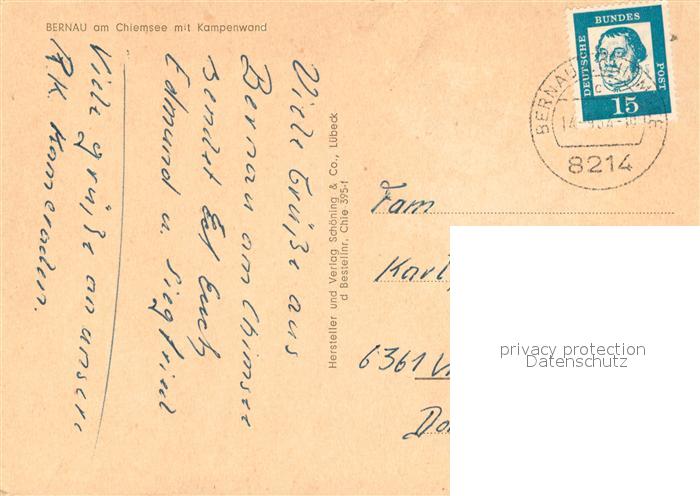 BERNAU am Chiemsee mit Kampenwand
Viele Grüße aus
Bernau am Chimsee
sendet Euch
Edmund u. Siegfried
Viele grüße an unsere
R.K. Kameraden.
Hersteller und Verlag Schöning & Co., Lübeck
d Bestellnr. Chie 395-f
DEUTSCHE BUNDES POST
15
BERNAU
8214
Fam
Karl
6361
privacy protection
Datenschutz